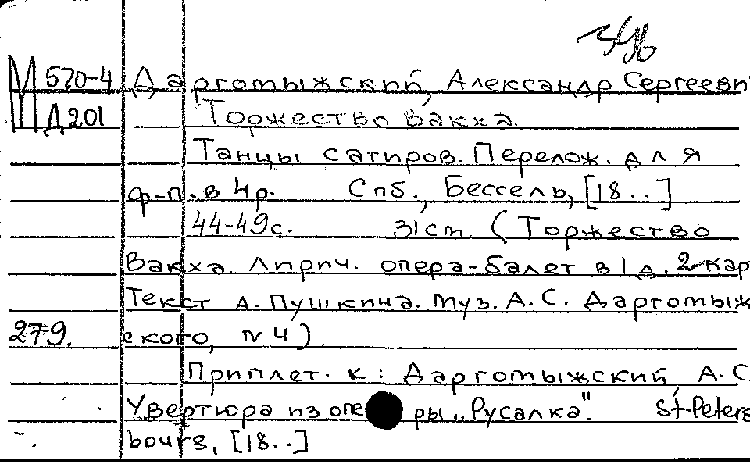 М 570-4 Даргомыжский, Александр Сергееви
Д 201 Торжество Вакха
Танцы сатиров. Перелож. для
ф-п. в 4 р. Спб., Бессель, [18..]
44-49 с. 31 ст. (Торжество
Вакха. Лирич. опера-балет в 1 д. 2 кар
Текст А. Пушкина. Муз. А.С. Даргомыж
279. ского, N 4)
Приплет. к: Даргомыжский, А.С
Увертюра из оперы „Русалка". St-Peters
bourg, [18..]